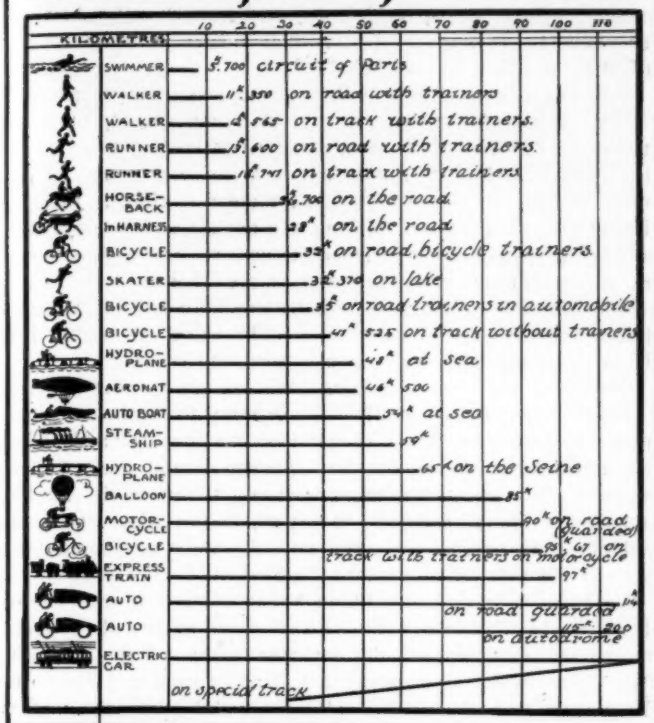 10 20 30 40 50 60 70 80 90 100 110
KILOMETRES
SWIMMER 5.700 circuit of Paris
WALKER 11K.350 on road with trainers
WALKER 565 on track with trainers.
RUNNER 600 on road with trainers.
RUNNER 741 on track with trainers
HORSE-
BACK 700 on the road
In HARNESS 28K on the road
BICYCLE 32K on road, bicycle trainers
SKATER 32K 370 on lake
BICYCLE 35K on road trainers in automobile
BICYCLE 41K 525 on track without trainers
HYDRO-
PLANE 48K at sea
AERONAT 46K 500
AUTO BOAT 54K at sea
STEAM-
SHIP 59K
HYDRO-
PLANE 65K on the Seine
BALLOON 85K
MOTOR-
CYCLE 90K on road
(guarded)
BICYCLE 95K.67 on
track with trainers on motorcycle
EXPRESS
TRAIN 97K
AUTO 114K
on road guarded
AUTO 115K.200
on autodrome
ELECTRIC
CAR
on special track